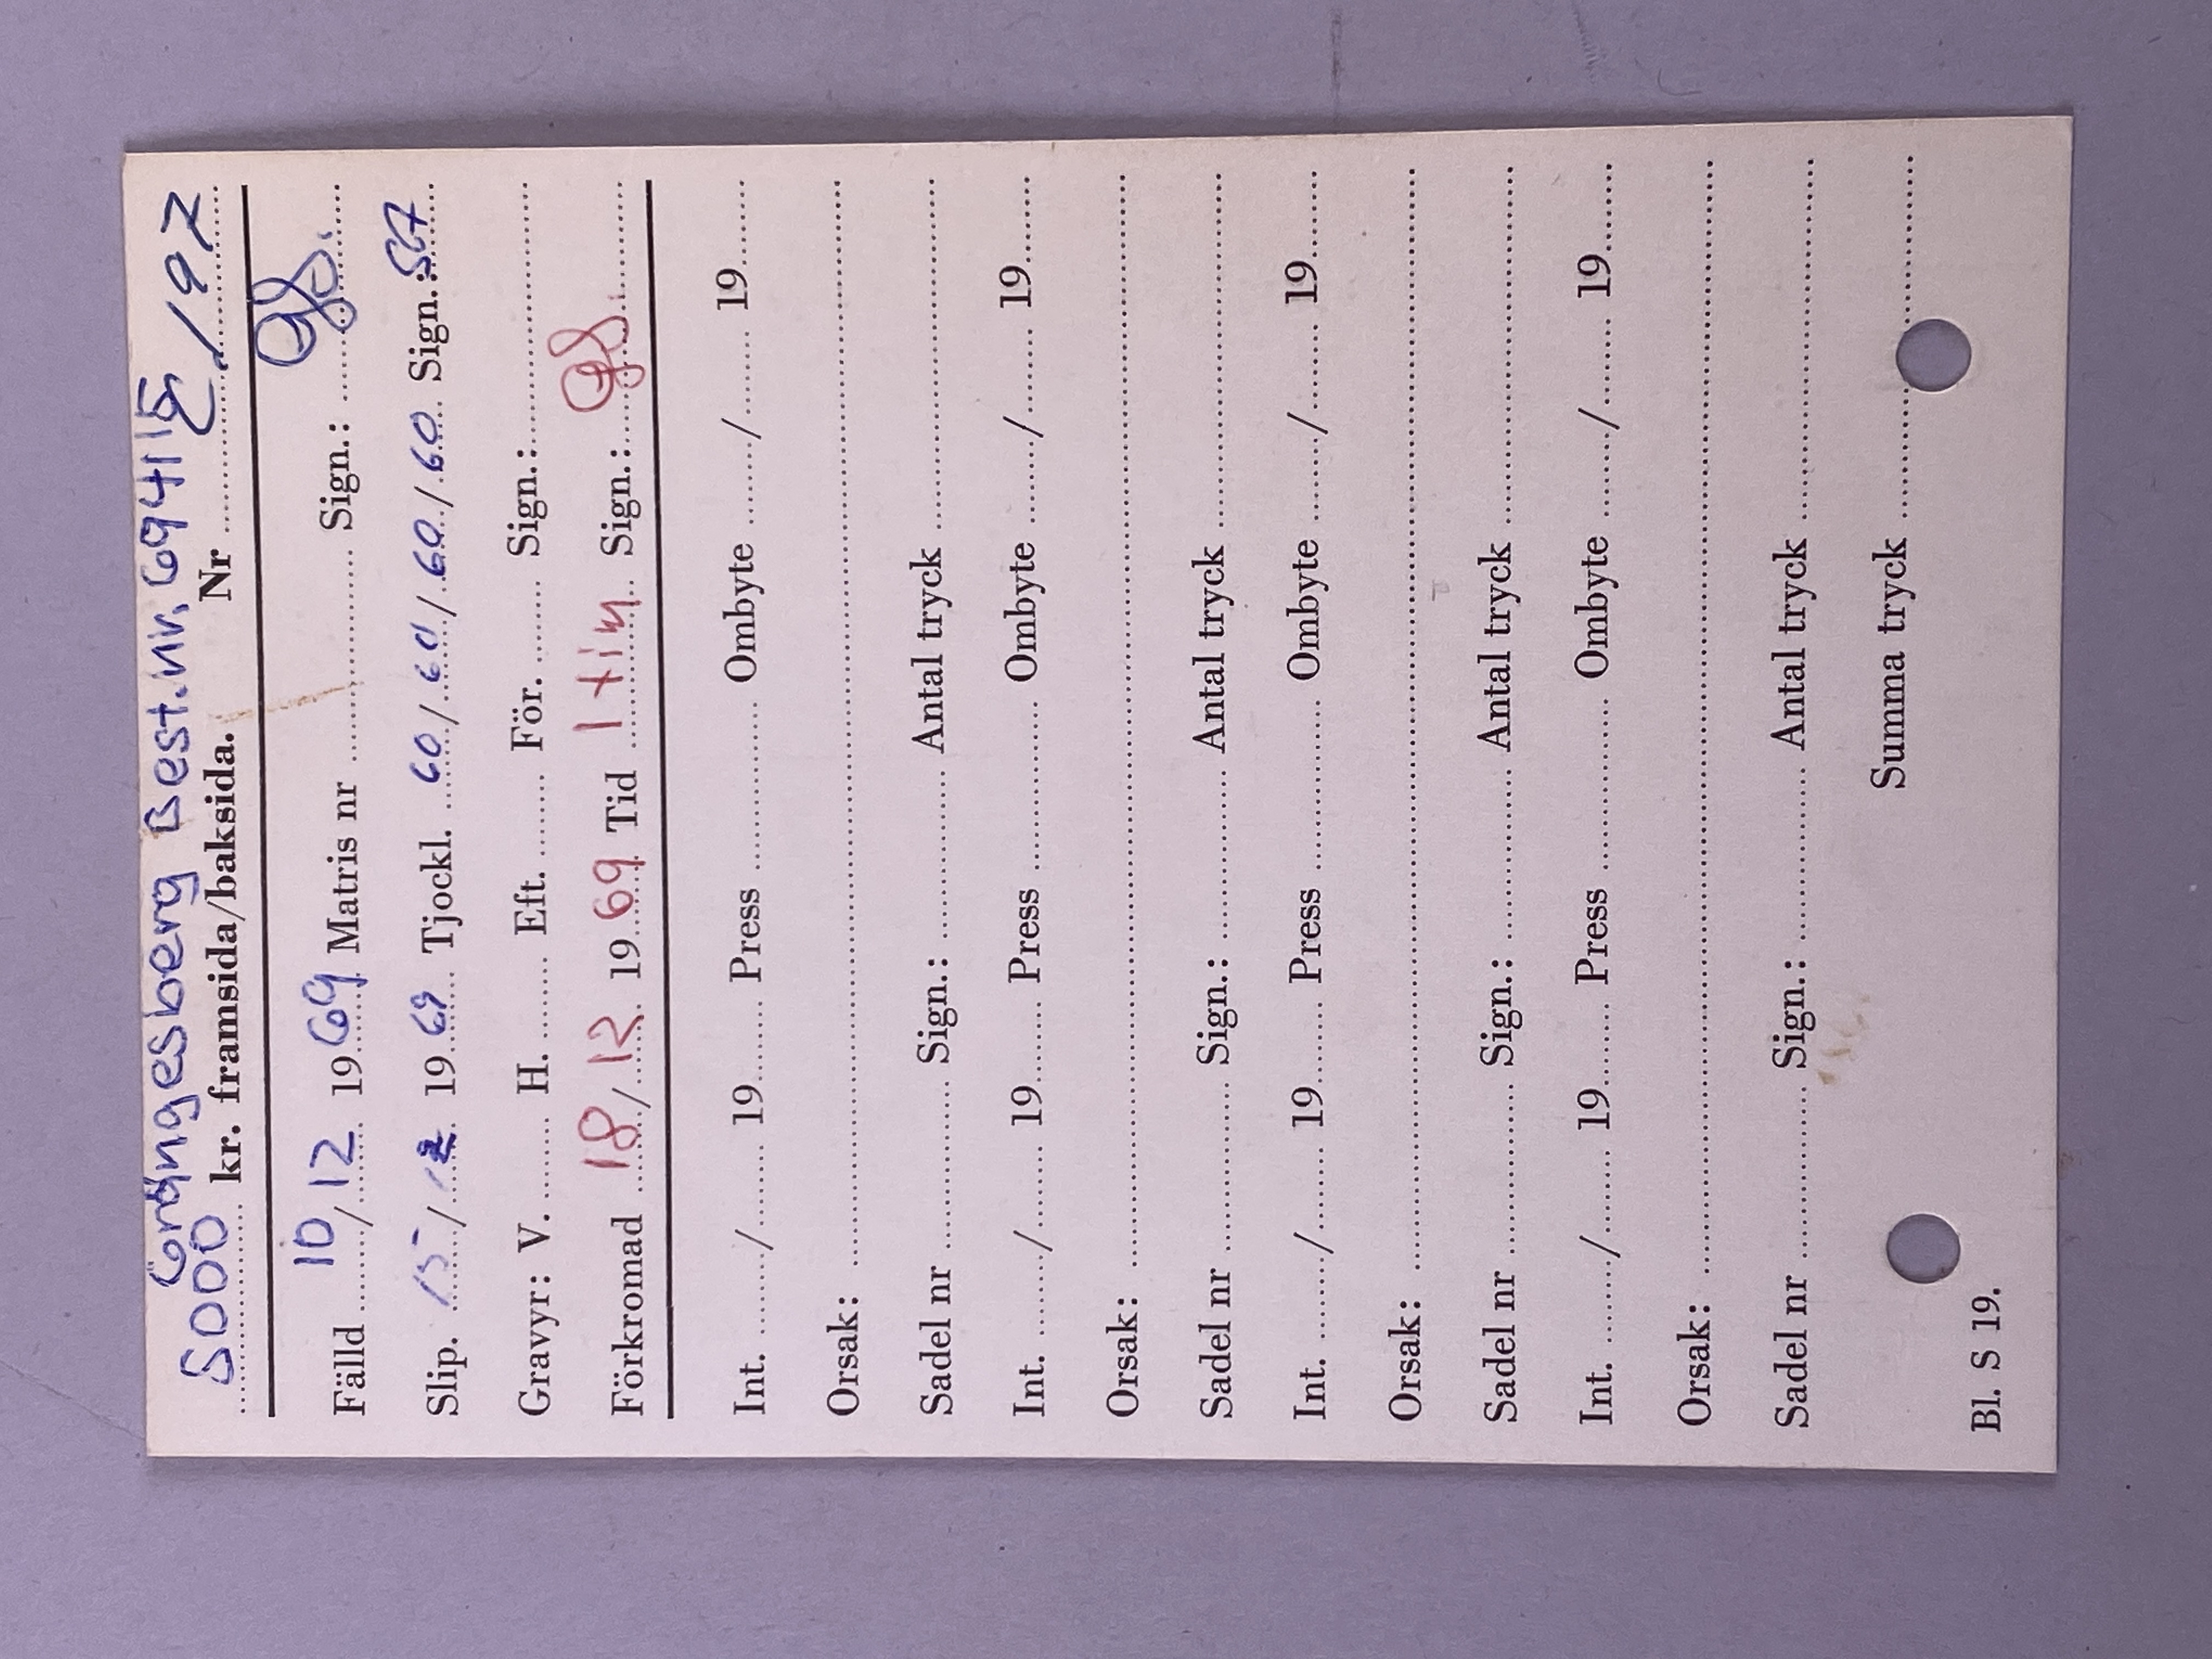 Grängesberg Best.nr. 69415
5000 kr. framsida/baksida. Nr E/197
Fälld 10/12 1969 Matris nr ........ Sign.:
Slip. 15/12 1969 Tjockl. 60/60/60/60 Sign.:
Gravyr: V. ........ H. ........ Eft. ........ För. ........ Sign.: ........
Förkromad 18/12 1969 Tid 1 tim Sign.:
Int. ......../........ 19...... Press ............ Ombyte ......../........ 19......
Orsak: ............
Sadel nr ............ Sign.: ............ Antal tryck ............
Int. ......../........ 19...... Press ............ Ombyte ......../........ 19......
Orsak: ............
Sadel nr ............ Sign.: ............ Antal tryck ............
Int. ......../........ 19...... Press ............ Ombyte ......../........ 19......
Orsak: ............
Sadel nr ............ Sign.: ............ Antal tryck ............
Int. ......../........ 19...... Press ............ Ombyte ......../........ 19......
Orsak: ............
Sadel nr ............ Sign.: ............ Antal tryck ............
Summa tryck ............
Bl. S 19.